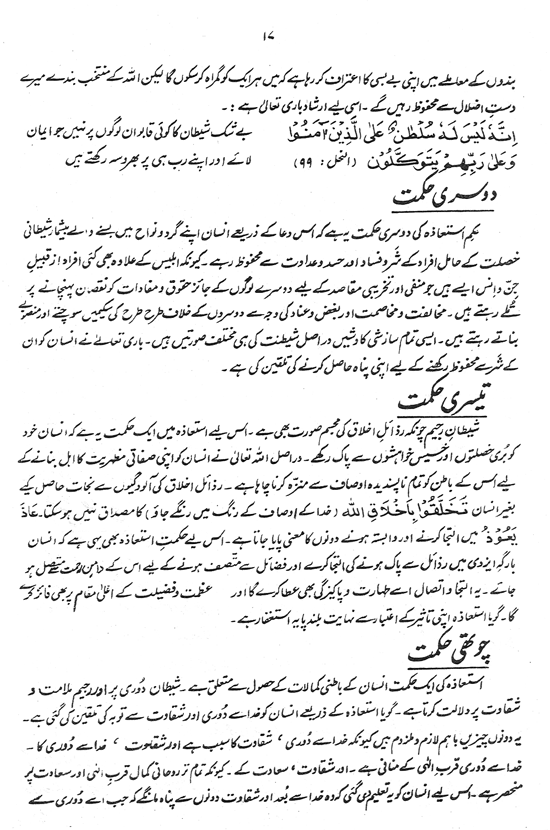 ۱۷
بندوں کے معاملے میں اپنی بے بسی کا اعتراف کر رہا ہے کہ میں ہر ایک کو گمراہ کر سکوں گا لیکن اللہ کے منتخب بندے میرے
دستِ اضلال سے محفوظ رہیں گے۔ اسی لیے ارشاد باری تعالیٰ ہے :۔
اِنَّهٗ لَیْسَ لَهٗ سُلْطٰنٌ عَلَی الَّذِیْنَ اٰمَنُوْا بے شک شیطان کا کوئی قابو ان لوگوں پر نہیں جو ایمان
وَعَلٰی رَبِّهِمْ یَتَوَکَّلُوْنَ (النحل : ۹۹) لائے اور اپنے رب ہی پر بھروسہ رکھتے ہیں
دوسری حکمت
حکمِ استعاذہ کی دوسری حکمت یہ ہے کہ اس دعا کے ذریعے انسان اپنے گرد و نواح میں بسنے والے بیشمار شیطانی
خصلت کے حامل افراد کے شر و فساد اور حسد و عداوت سے محفوظ رہے۔ کیونکہ ابلیس کے علاوہ بھی کئی افراد از قبیلِ
جن و انس ایسے ہیں جو منفی اور تخریبی مقاصد کے لیے دوسرے لوگوں کے جائز حقوق و مفادات کو نقصان پہنچانے پر
تُلے رہتے ہیں۔ مخالفت و مخاصمت اور بغض و عناد کی وجہ سے دوسروں کے خلاف طرح طرح کی سکیمیں سوچتے اور منصوبے
بناتے رہتے ہیں۔ ایسی تمام سازشی کاوشیں دراصل شیطنت کی ہی مختلف صورتیں ہیں۔ باری تعالےٰ نے انسان کو ان
کے شر سے محفوظ رکھنے کے لیے اپنی پناہ حاصل کرنے کی تلقین کی ہے۔
تیسری حکمت
شیطانِ رجیم چونکہ رذائلِ اخلاق کی مجسم صورت بھی ہے۔ اس لیے استعاذہ میں ایک حکمت یہ ہے کہ انسان خود
کو بُری خصلتوں اور خسیس خواہشوں سے پاک رکھے۔ دراصل اللہ تعالیٰ نے انسان کو اپنی صفاتی مظہریت کا اہل بنانے کے
لیے اس کے باطن کو تمام ناپسندیدہ اوصاف سے منزہ کرنا چاہا ہے۔ رذائل اخلاق کی آلودگیوں سے نجات حاصل کیے
بغیر انسان تَخَلَّقُوْا بِاَخْلَاقِ اللّٰه (خدا کے اوصاف کے رنگ میں رنگے جاؤ) کا مصداق نہیں ہو سکتا۔ عَاذَ
یَعُوْذُ میں التجا کرنے اور وابستہ ہونے دونوں کا معنی پایا جاتا ہے۔ اس لیے حکمتِ استعاذہ بھی یہی ہے کہ انسان
بارگہِ ایزدی میں رذائل سے پاک ہونے کی التجا کرے اور فضائل سے متصف ہونے کے لیے اس کے دامنِ رحمت سے متصل ہو
جائے۔ یہ التجا و اتصال اسے طہارت و پاکیزگی بھی عطا کرے گا اور عظمت و فضیلت کے اعلیٰ مقام پر بھی فائز کرے
گا۔ گویا استعاذہ اپنی تاثیر کے اعتبار سے نہایت بلند پایہ استغفار ہے۔
چوتھی حکمت
استعاذہ کی ایک حکمت انسان کے باطنی کمالات کے حصول سے متعلق ہے۔ شیطان دُوری پر اور رجیم ملامت و
شقاوت پر دلالت کرتا ہے۔ گویا استعاذہ کے ذریعے انسان کو خدا سے دُوری اور شقاوت سے توبہ کی تلقین کی گئی ہے۔
یہ دونوں چیزیں باہم لازم و ملزوم ہیں کیونکہ خدا سے دُوری ، شقاوت کا سبب ہے اور شقاوت ، خدا سے دُوری کا۔
خدا سے دُوری قربِ الٰہی کے منافی ہے۔ اور شقاوت ، سعادت کے۔ کیونکہ تمام تر روحانی کمال قربِ الٰہی اور سعادت پر
منحصر ہے۔ اس لیے انسان کو یہ تعلیم دی گئی کہ وہ خدا سے بُعد اور شقاوت دونوں سے پناہ مانگے کہ جب اسے دُوری سے